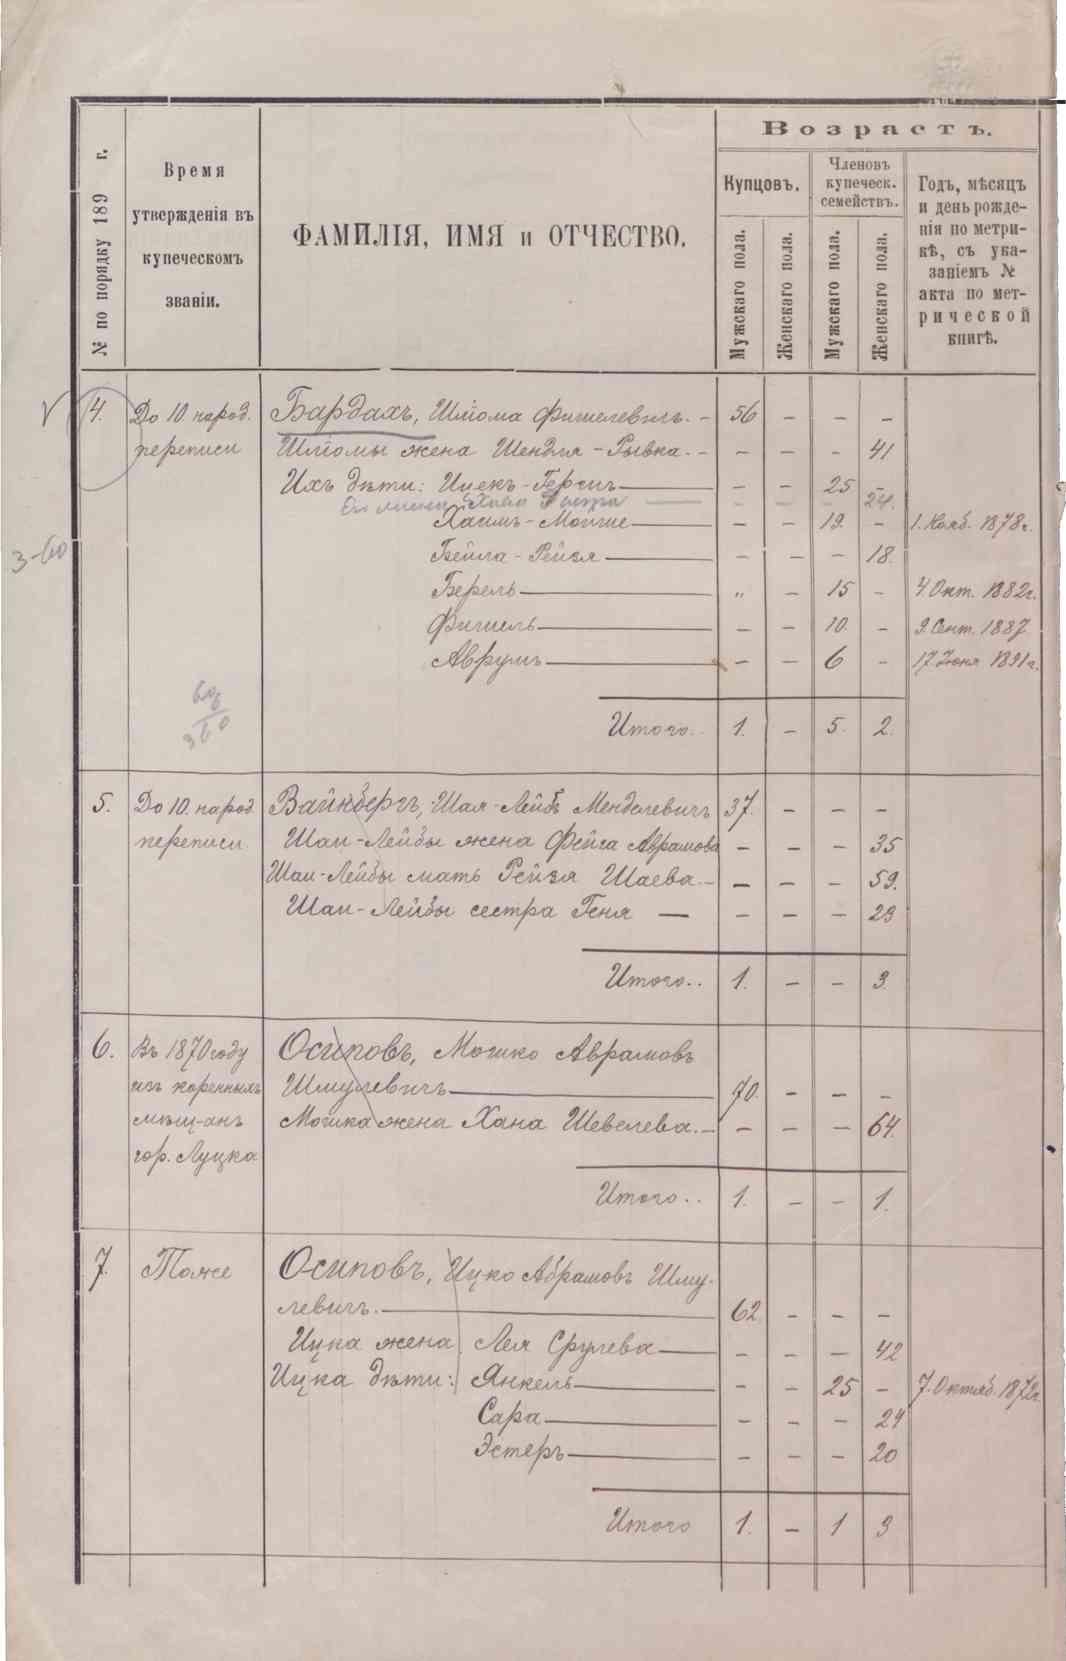 № по порядку 189 г.
Время
утвержденія въ
купеческомъ
званіи.
ФАМИЛІЯ, ИМЯ и ОТЧЕСТВО.
Возрастъ.
Купцовъ.
Членовъ
купеческ.
семействъ.
Мужскаго пола.
Женскаго пола.
Мужскаго пола.
Женскаго пола.
Годъ, мѣсяцъ
и день рожде-
нія по метри-
кѣ, съ ука-
заніемъ №
акта по мет-
рической
книгѣ.
V 4. До 10 народ. Бардахъ, Шлиома Фишелевичъ. - 56 - - -
переписи Шлиомы жена Шендля-Рывка. - - - - 41
Ихъ дѣти: Ицекъ-Гершъ - - 25 -
Его жена Хава - - - 24.
Хаимъ-Моише - - 19. - 1. Нояб. 1878 г.
3-60
Бейла-Рейзя - - - 18.
Берель " - 15 - 4. Окт. 1882 г.
Фишель - - 10. - 9. Сент. 1887
Аврумъ - - 6 - 17. Іюня 1891 г.
Итого.. 1. - 5. 2.
60
360
5. До 10. народ. Вайнбергъ, Шая-Лейбъ Менделевичъ 37. - - -
переписи. Шаи-Лейбы жена Фейга Аврамова - - - 35
Шаи-Лейбы мать Рейзя Шаева. - - - - 59.
Шаи-Лейбы сестра Геня - - - - 29
Итого.. 1. - - 3.
6. Въ 1870 году Осиповъ, Мошко Аврамовъ
изъ коренныхъ Шмулевичъ 70. - - -
мѣщ-анъ Мошка жена Хана Шевелева. - - - - 64.
гор. Луцка
Итого.. 1. - - 1.
7. Тоже Осиповъ, Ицко Абрамовъ Шму-
левичъ. 62. - - -
Ицка жена Лея Срулева - - - 42
Ицка дѣти: Янкель - - 25 - 7. Октяб. 1872 г.
Сара - - - 24
Эстеръ - - - 20
Итого 1. - 1 3